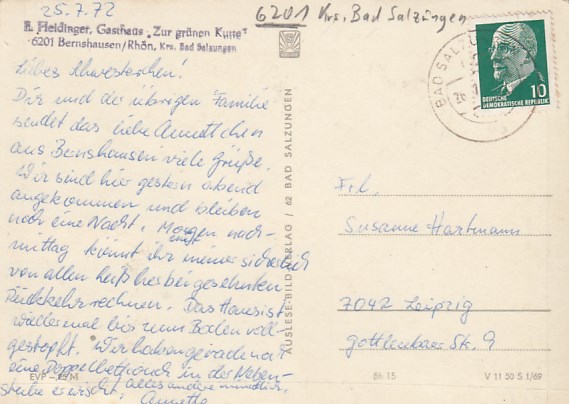 25.7.72
6201 Krs. Bad Salzungen
F. Heidinger, Gasthaus „Zur grünen Kutte"
6201 Bernshausen/Rhön, Krs. Bad Salzungen
Liebes Schwesterchen!
Dir und der übrigen Familie
sendet das liebe Annettchen
aus Bernshausen viele Grüße.
Wir sind hier gestern abend
angekommen und bleiben
noch eine Nacht. Morgen nach-
mittag könnt ihr mit meiner sicherlich
von allen heiß herbeigesehnten
Rückkehr rechnen. Das Haus ist
wieder mal bis zum Boden voll-
gestopft. Wir haben gerade noch
eine Doppelbettcouch in der Neben-
stube erwischt, alles andere mündlich.
Annette
EVP
AUSLESE-BILD-VERLAG / 62 BAD SALZUNGEN
BAD SALZU
DEUTSCHE
DEMOKRATISCHE REPUBLIK
10
Frl.
Susanne Hartmann
7042 Leipzig
Gottleubaer Str. 9
Bh 15
V 11 50 S 1/69